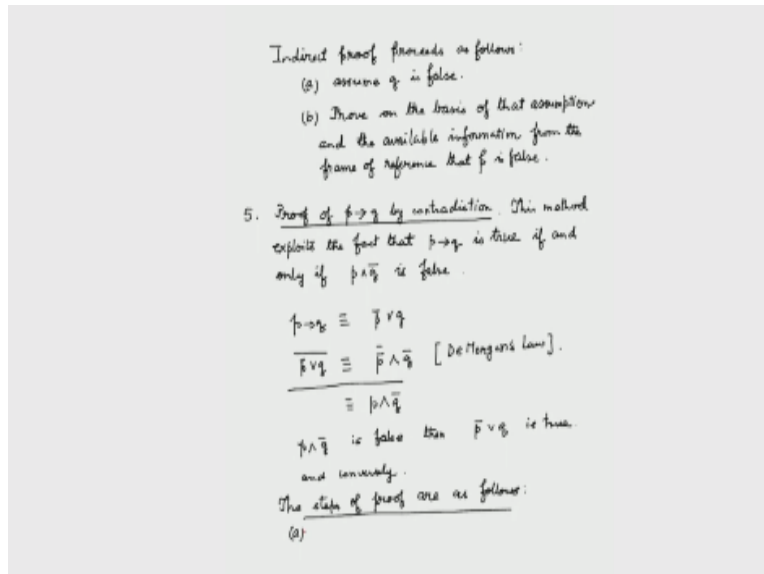 Indirect proof proceeds as follows:
(a) assume q is false.
(b) Prove on the basis of that assumption
and the available information from the
frame of reference that p is false.
5. Proof of p→q by contradiction. This method
exploits the fact that p→q is true if and
only if p∧q̅ is false.
p→q ≡ p̅∨q
\overline{p̅∨q} ≡ p̿∧q̅ [De Morgan's Law].
≡ p∧q̅
p∧q̅ is false then p̅∨q is true
and conversely.
The steps of proof are as follows:
(a)